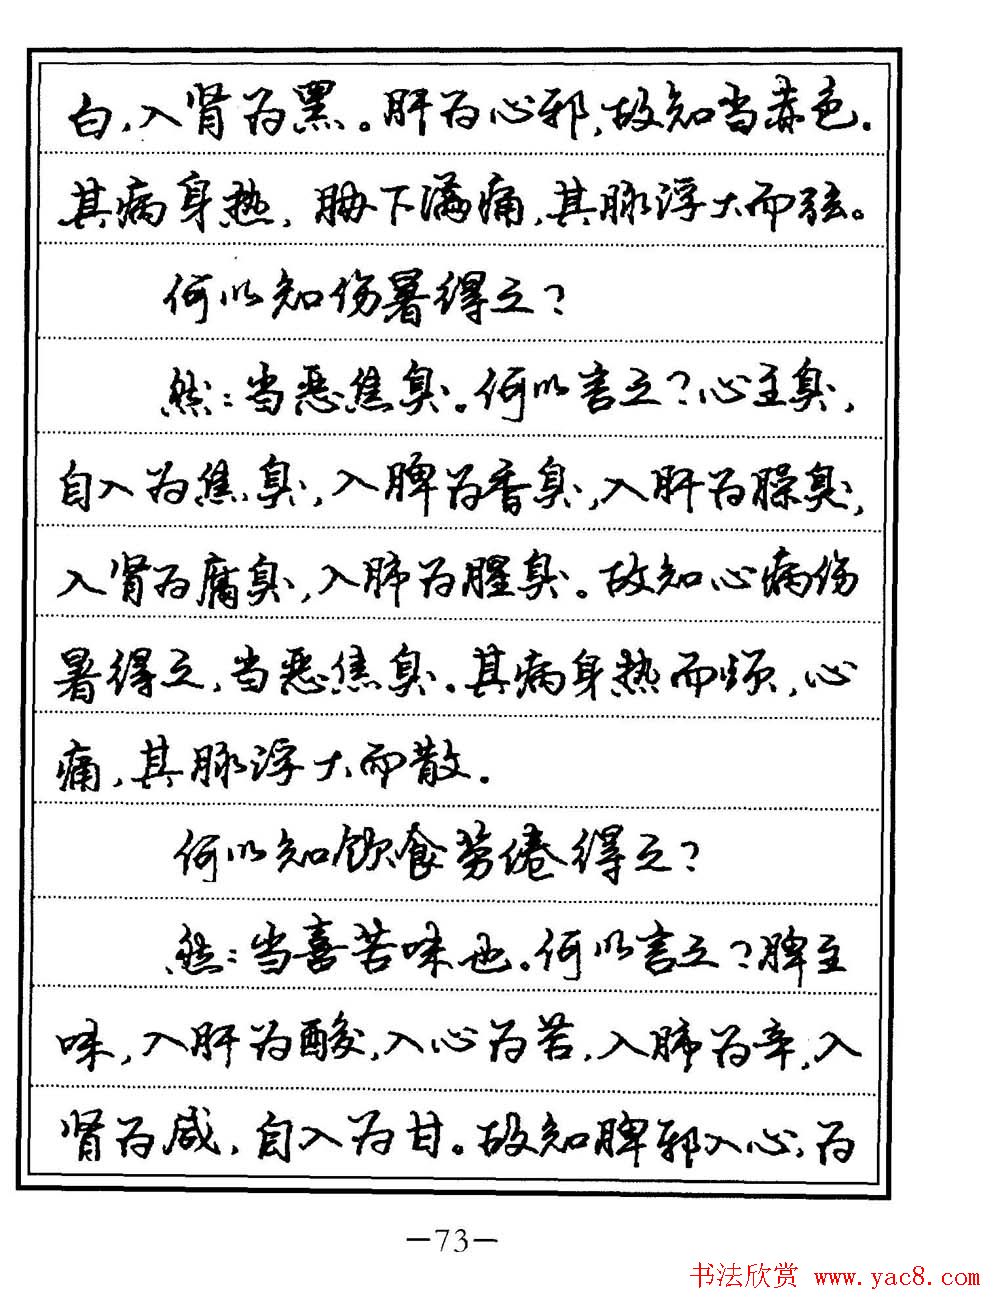 白,入肾为黑。肝为心邪,故知当赤色。
其病身热,胁下满痛,其脉浮大而弦。
何以知伤暑得之?
然:当恶焦臭。何以言之?心主臭,
自入为焦臭,入脾为香臭,入肝为臊臭,
入肾为腐臭,入肺为腥臭。故知心病伤
暑得之,当恶焦臭。其病身热而烦,心
痛,其脉浮大而散。
何以知饮食劳倦得之?
然:当喜苦味也。何以言之?脾主
味,入肝为酸,入心为苦,入肺为辛,入
肾为咸,自入为甘。故知脾邪入心,为
—73—
书法欣赏 www.yac8.com